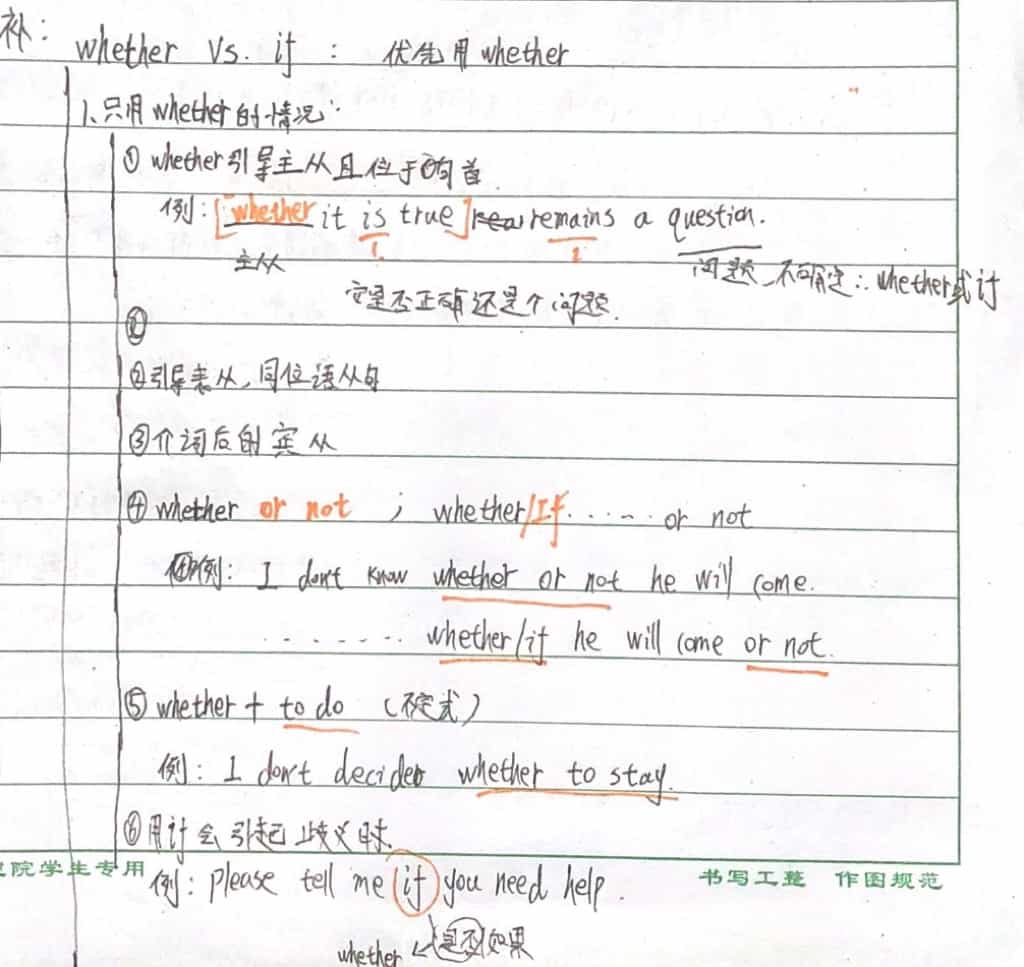 补:
whether Vs. if : 优先用 whether
1、只用 whether 的情况:
① whether引导主从且位于句首.
例: [whether it is true] remains a question.
主从 1 2 问题 不确定 ∴ whether或if
它是否正确还是个问题.
②
②引导表从, 同位语从句
③介词后的宾从
④ whether or not ; whether/If ...... or not
例: I don't know whether or not he will come.
........ whether/if he will come or not.
⑤ whether + to do (不定式)
例: I don't decided whether to stay.
⑥用if会引起歧义时.
院学生专用 书写工整 作图规范
例: please tell me if you need help.
whether 是否/如果